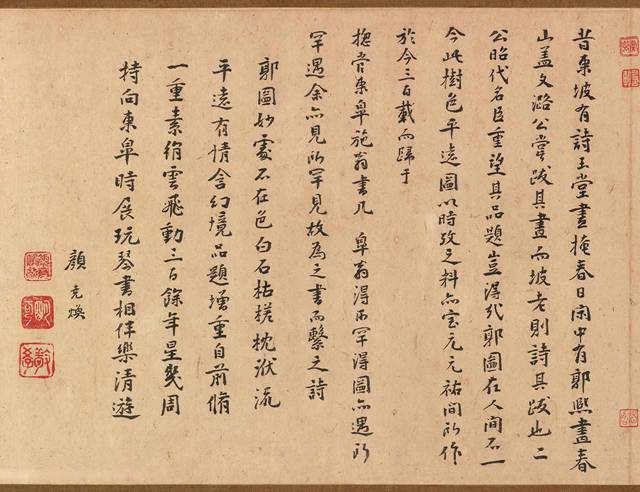 昔東坡有詩玉堂晝掩春日閑中有郭熙畫春
山盖文潞公嘗跋其畫而坡老則詩其跋也二
公昭代名臣重望其品題豈得輕郭圖在人間不一
今此樹色平遠圖以時攷之料亦宝元元祐間所作
於今三百載而歸于
捴管東皐施翁書几 皐翁得所罕得圖亦遇所
罕遇余亦見所罕見故為之書而繫之詩
郭圖妙處不在色白石枯槎枕漱流
平遠有情含幻境品題增重自前脩
一重素綃雲飛動三百餘年星幾周
持向東皐時展玩琴書相伴樂清遊
顏克煥